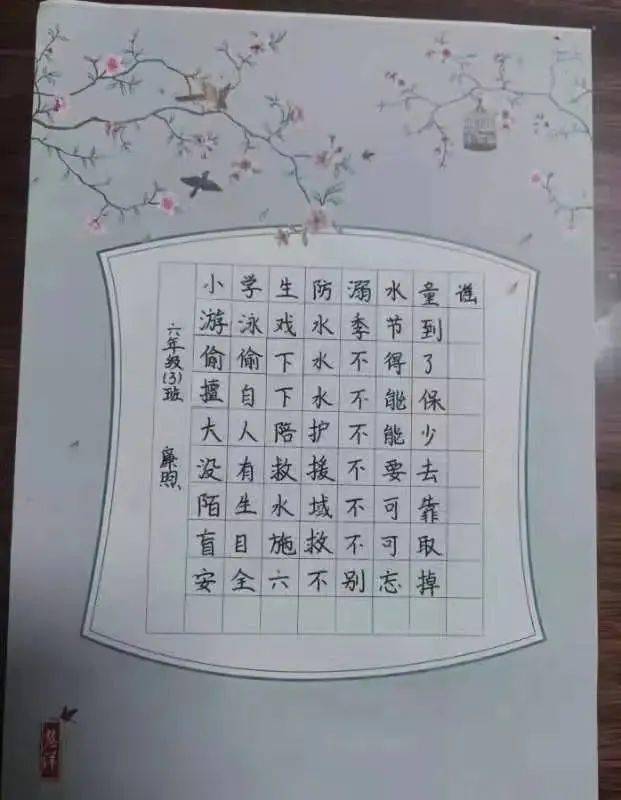 小学生防溺水童谣
游泳戏水季节到
偷偷下水不得了
擅自下水不能保
大人陪护不能少
没有救援不要去
陌生水域不可靠
盲目施救不可取
安全六不别忘掉
六年级(3)班
廉煦